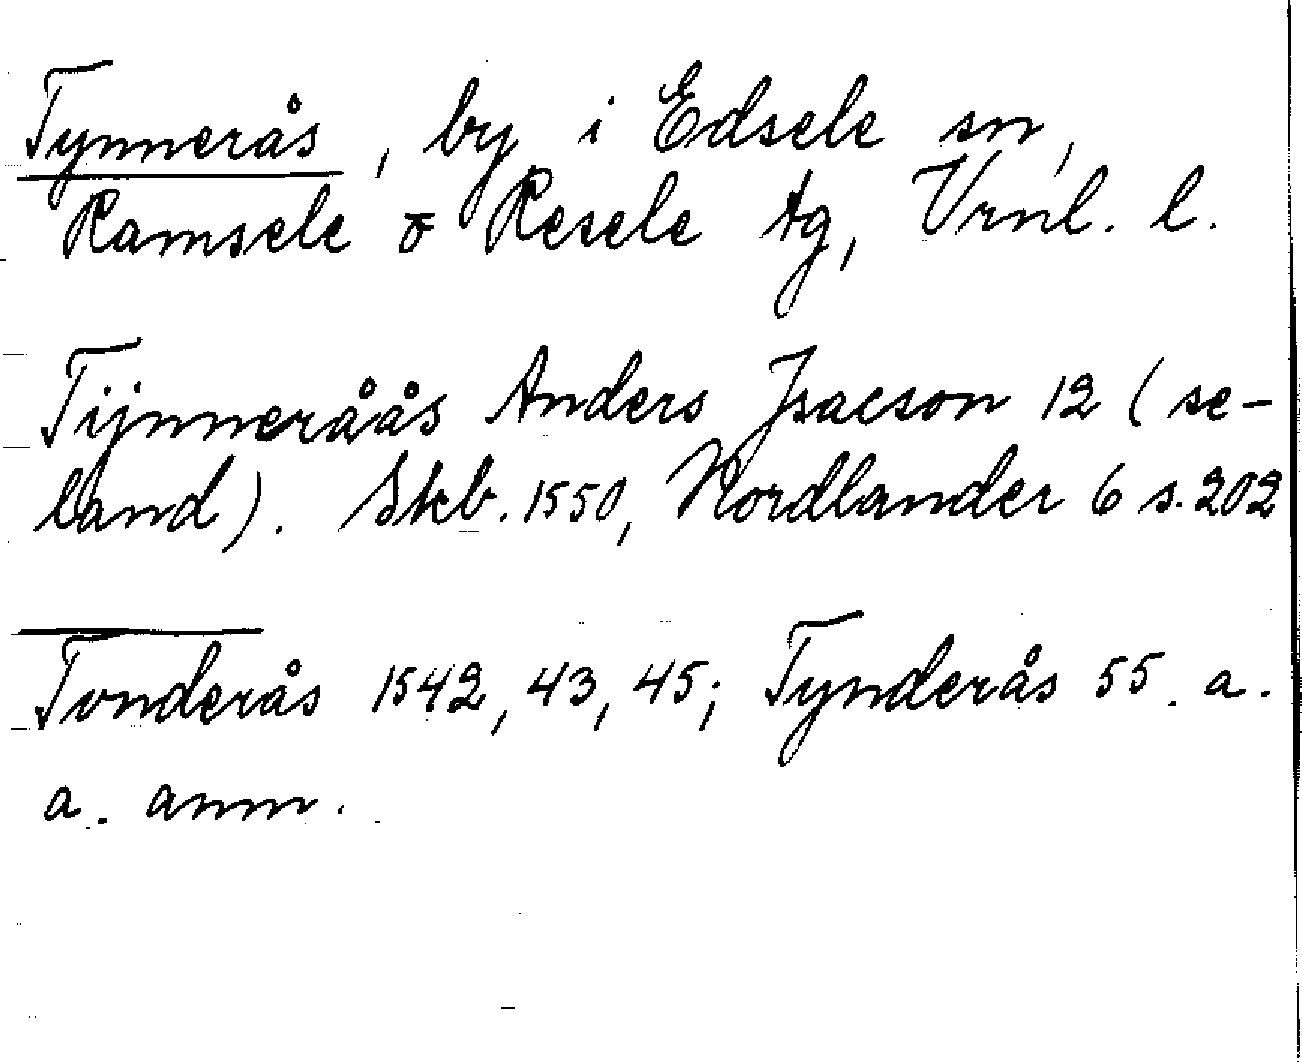 Tynnerås, by i Edsele sn,
Ramsele o Resele tg, Vrnl. l.
Tijnneråås Anders Jsacson 12 (se-
land). Skb. 1550, Nordlander 6 s. 202
Tvnderås 1542, 43, 45; Tynderås 55. a.
a. anm.